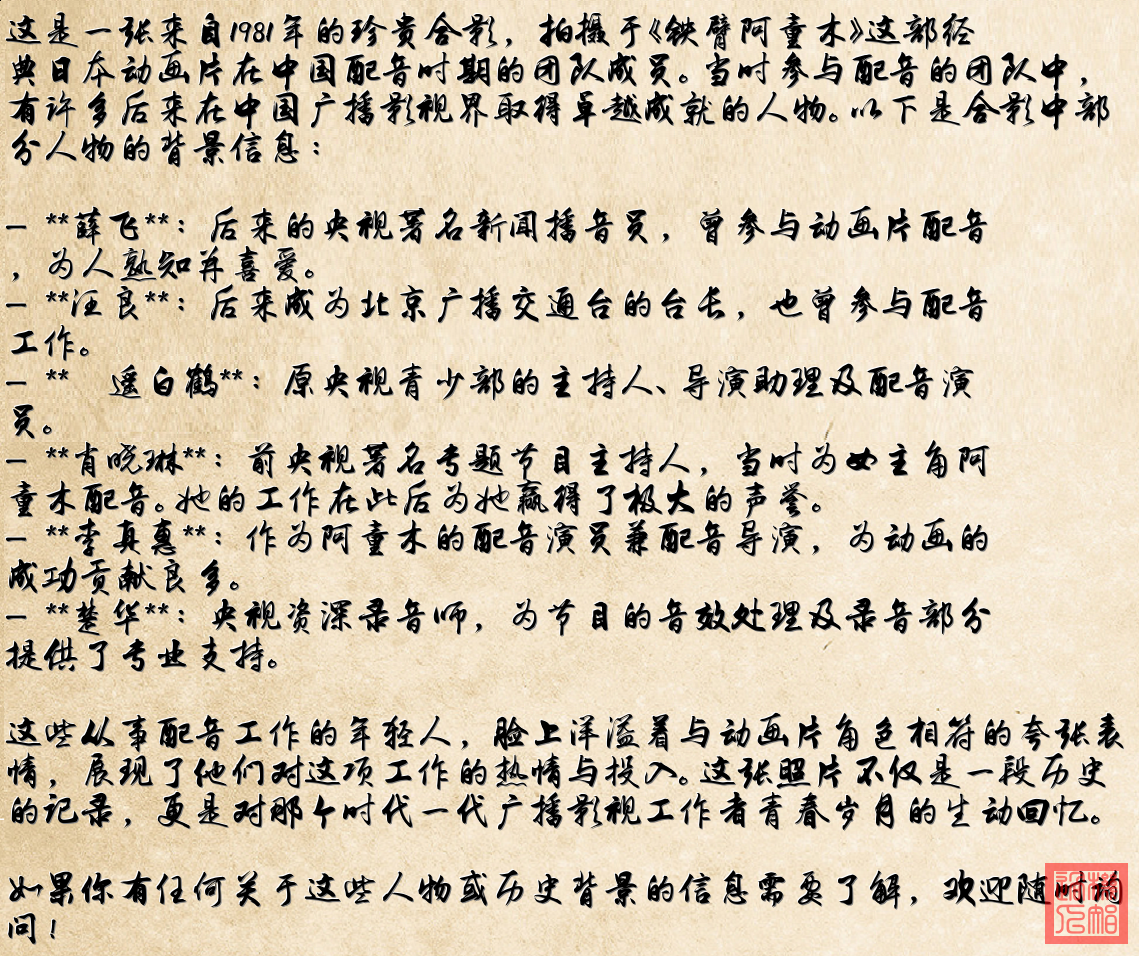 这是一张来自1981年的珍贵合影，拍摄于《铁臂阿童木》这部经
典日本动画片在中国配音时期的团队成员。当时参与配音的团队中，
有许多后来在中国广播影视界取得卓越成就的人物。以下是合影中部
分人物的背景信息：
- **薛飞**：后来的央视著名新闻播音员，曾参与动画片配音
，为人熟知并喜爱。
- **汪良**：后来成为北京广播交通台的台长，也曾参与配音
工作。
- ** 遥白鹤**：原央视青少部的主持人、导演助理及配音演
员。
- **肖晓琳**：前央视著名专题节目主持人，当时为女主角阿
童木配音。她的工作在此后为她赢得了极大的声誉。
- **李真惠**：作为阿童木的配音演员兼配音导演，为动画的
成功贡献良多。
- **楚华**：央视资深录音师，为节目的音效处理及录音部分
提供了专业支持。
这些从事配音工作的年轻人，脸上洋溢着与动画片角色相符的夸张表
情，展现了他们对这项工作的热情与投入。这张照片不仅是一段历史
的记录，更是对那个时代一代广播影视工作者青春岁月的生动回忆。
如果你有任何关于这些人物或历史背景的信息需要了解，欢迎随时询
问！